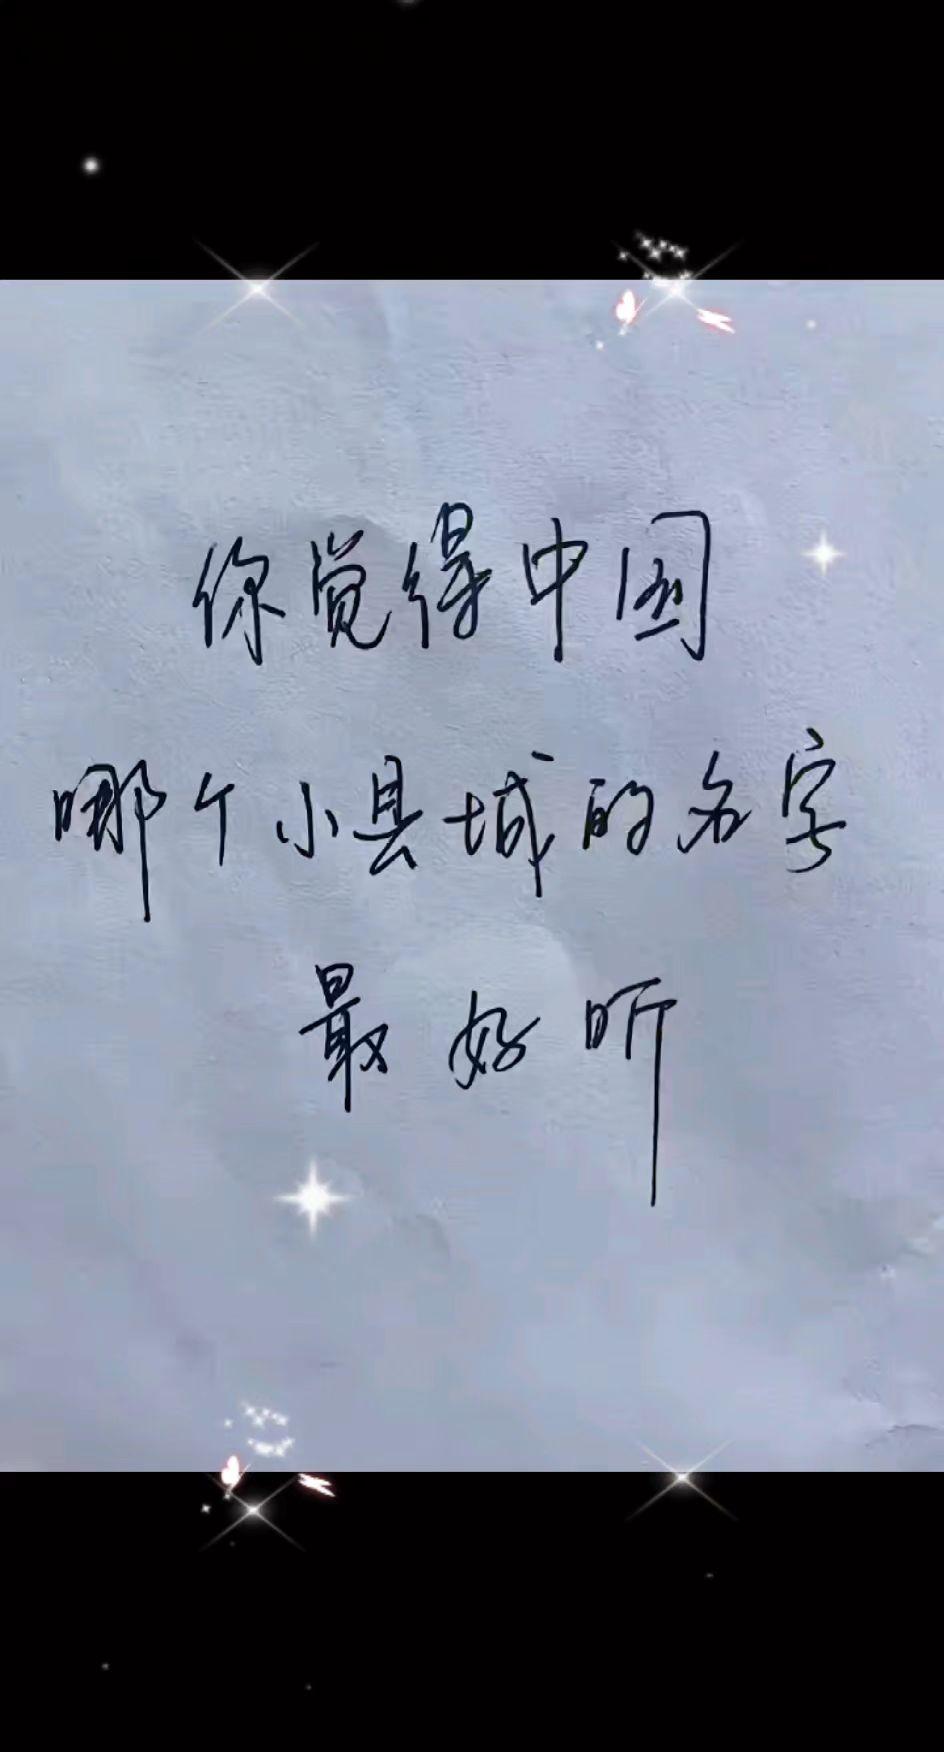 你觉得中国
哪个小县城的名字
最好听